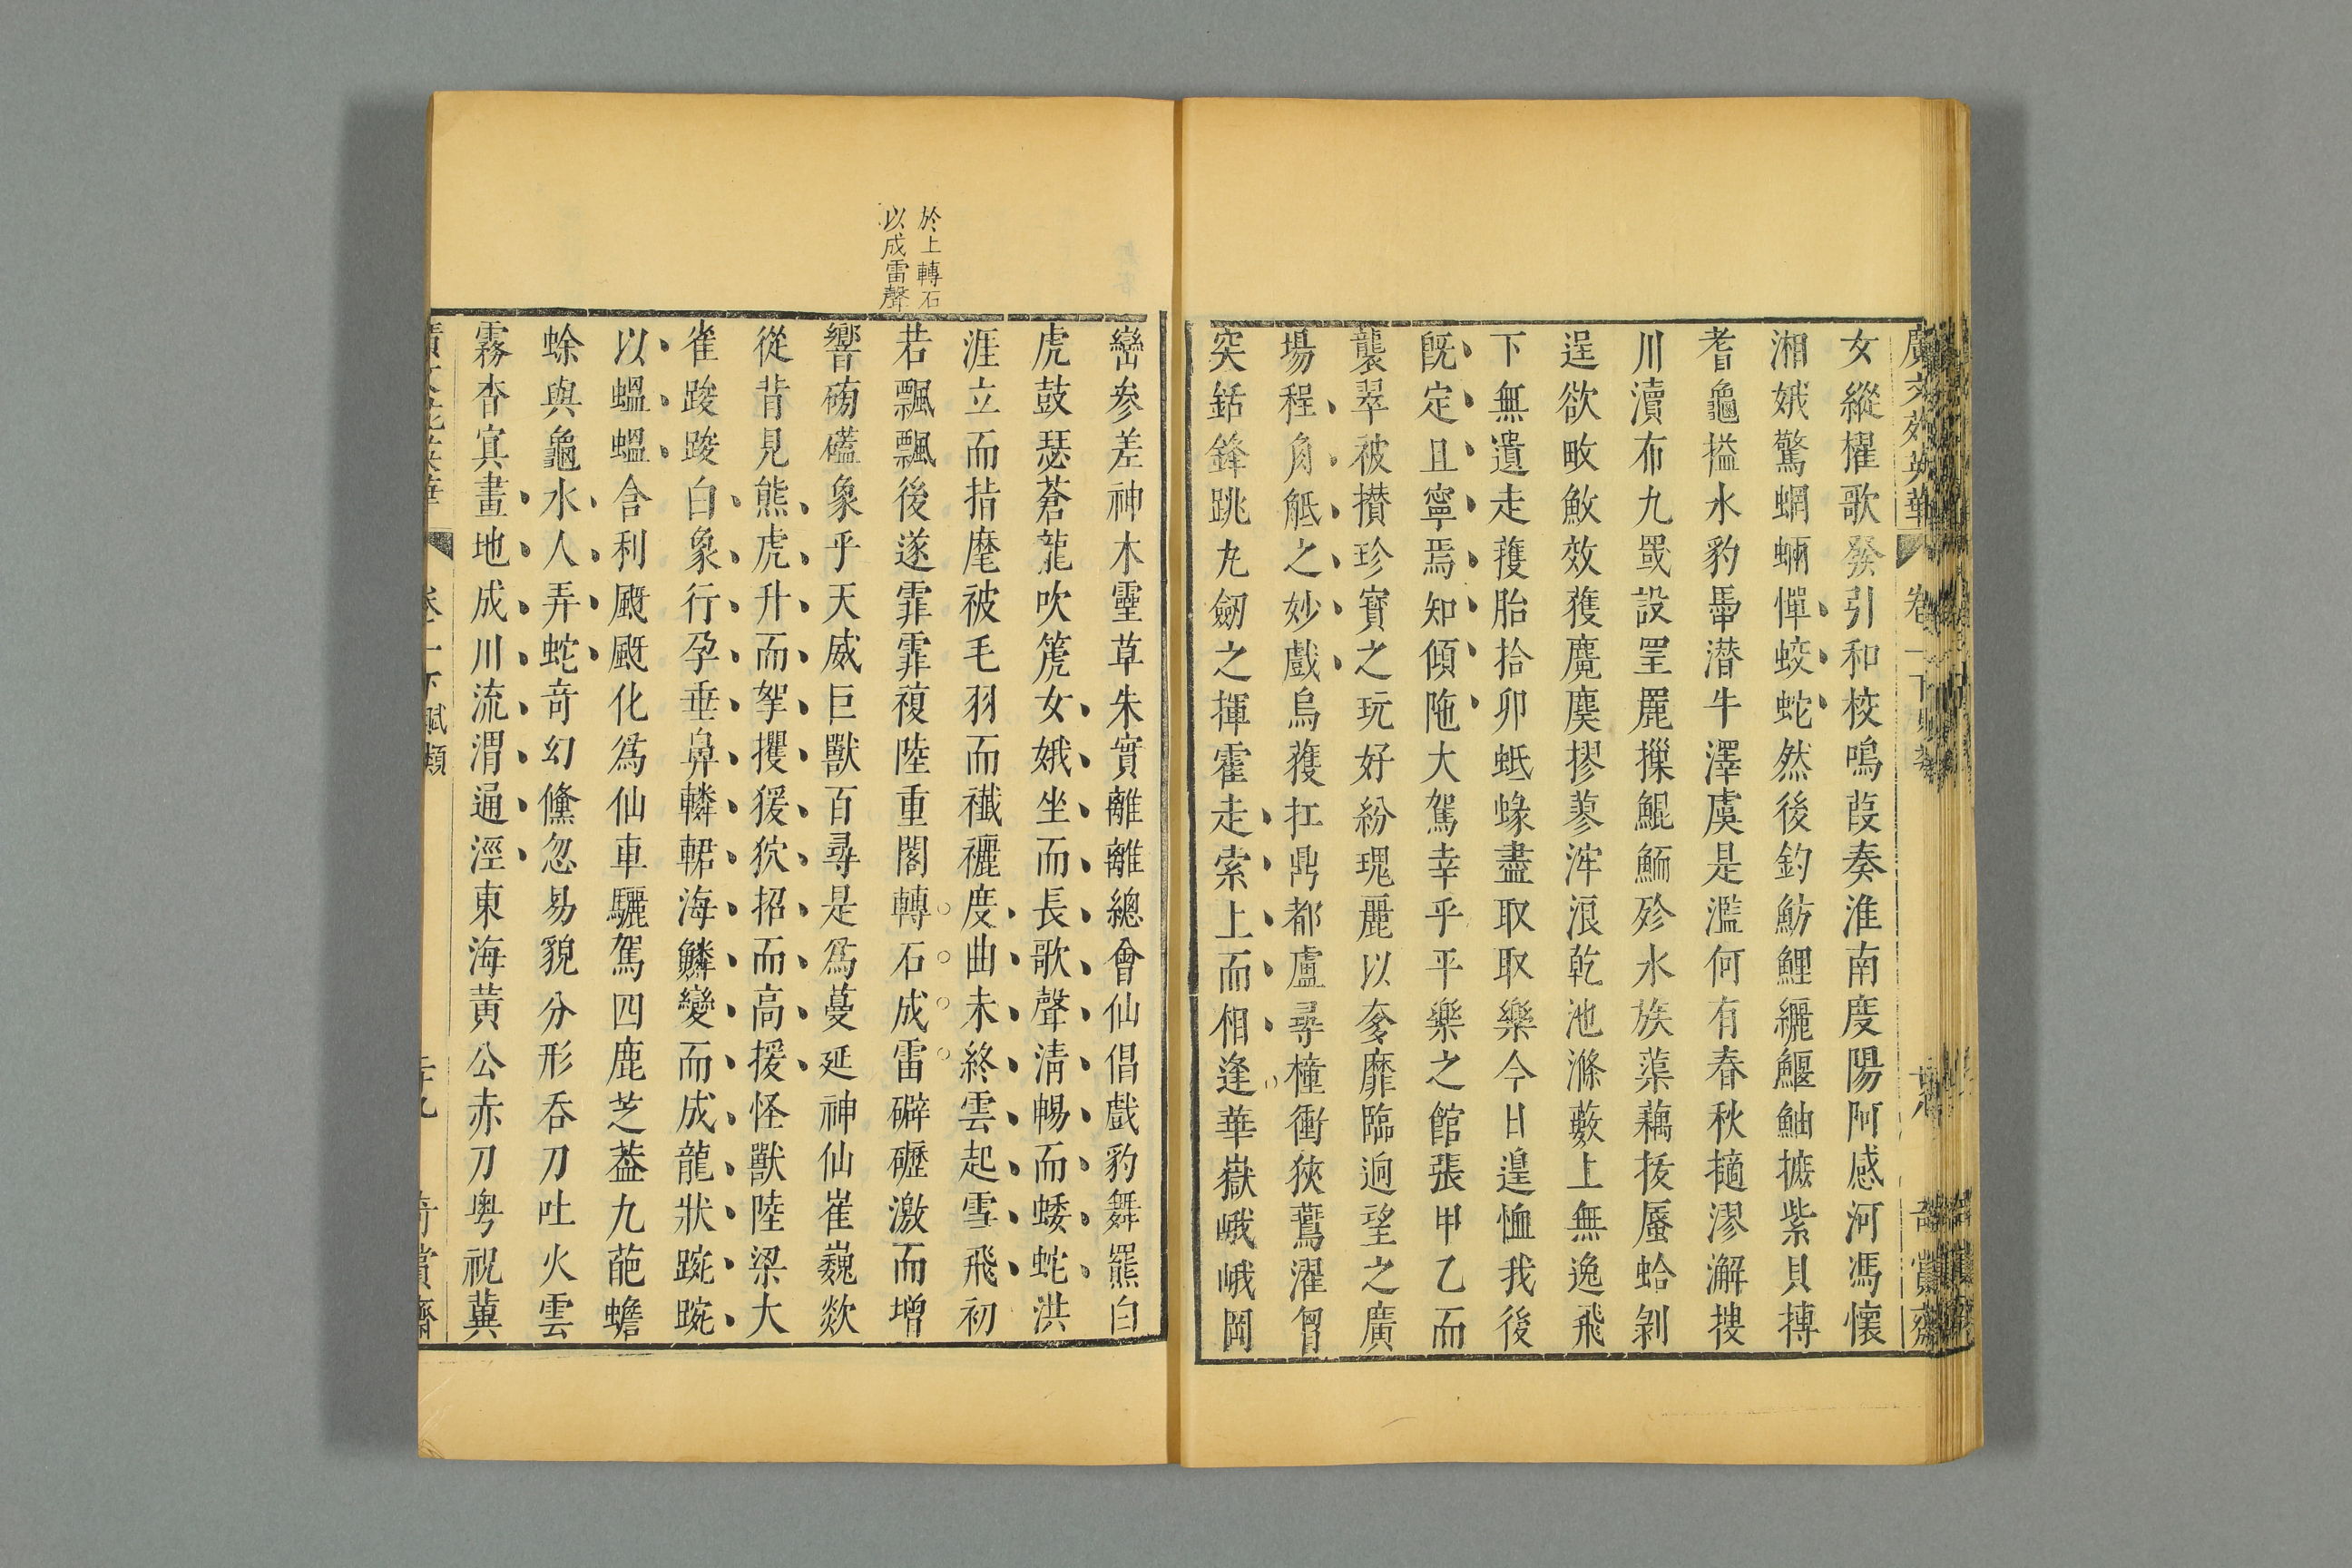 廣文苑英華 卷一下 賦類 奇賞齋
女縱櫂歌發引和校鳴葭奏淮南度陽阿感河馮懷
湘娥驚蝄蜽憚蛟蛇然後釣魴鱧纚鰋鮋摭紫貝搏
耆龜搤水豹馽潛牛澤虞是濫何有春秋擿漻澥搜
川瀆布九罭設罜䍡摷鯤鮞殄水族蕖藕拔蜃蛤剝
逞欲畋䰻效獲麑麌摎蓼浶浪乾池滌藪上無逸飛
下無遺走擭胎拾卵蚳蝝盡取取樂今日遑恤我後
既定且寧焉知傾陁大駕幸乎平樂之館張甲乙而
襲翠被攢珍寶之玩好紛瑰麗以奓靡臨迥望之廣
場程角觝之妙戲烏獲扛鼎都盧尋橦衝狹鷰濯胷
突銛鋒跳丸劒之揮霍走索上而相逢華嶽峨峨岡
於上轉石
以成雷聲
巒參差神木靈草朱實離離總會仙倡戲豹舞羆白
虎鼓瑟蒼龍吹篪女娥坐而長歌聲淸暢而蜲蛇洪
涯立而指麾被毛羽而襳襹度曲未終雲起雪飛初
若飄飄後遂霏霏複陸重閣轉石成雷礔礰激而增
響磅礚象乎天威巨獸百尋是爲蔓延神仙崔巍欻
從背見熊虎升而挐攫猨狖招而高援怪獸陸梁大
雀踆踆白象行孕垂鼻轔輑海鱗變而成龍狀踠踠
以蝹蝹含利颬颬化爲仙車驪駕四鹿芝葢九葩蟾
蜍與龜水人弄蛇奇幻儵忽易貌分形吞刀吐火雲
霧杳冥畫地成川流渭通涇東海黃公赤刀粤祝冀
賦類 奇賞齋